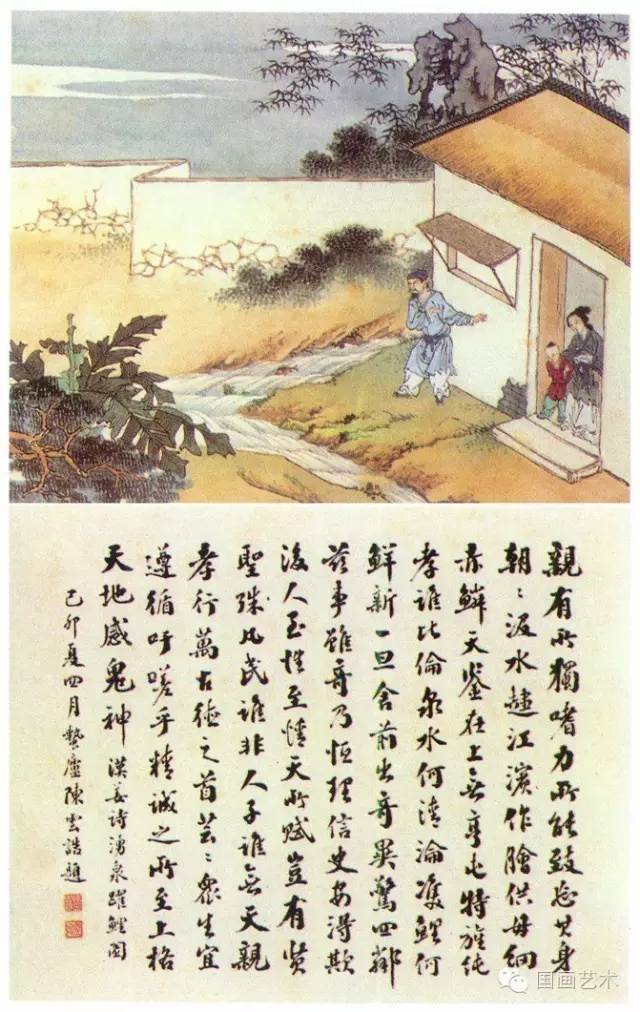 親有所獨嗜力所能致忘其身
朝〻汲水趨江濱作膾供母網
赤鱗天鑒在上無亨屯特旌純
孝誰比倫泉水何清淪雙鯉何
鮮新一旦舍前出奇異驚四鄰
茲事雖奇乃恒理信史安得欺
後人至性至情天所賦豈有賢
聖殊凡民誰非人子誰無天親
孝行萬古德之首芸〻眾生宜
遵循吁嗟乎精誠之所至上格
天地感鬼神 漢姜詩湧泉躍鯉圖
己卯夏四月蟄廬陳雲誥題
国画艺术